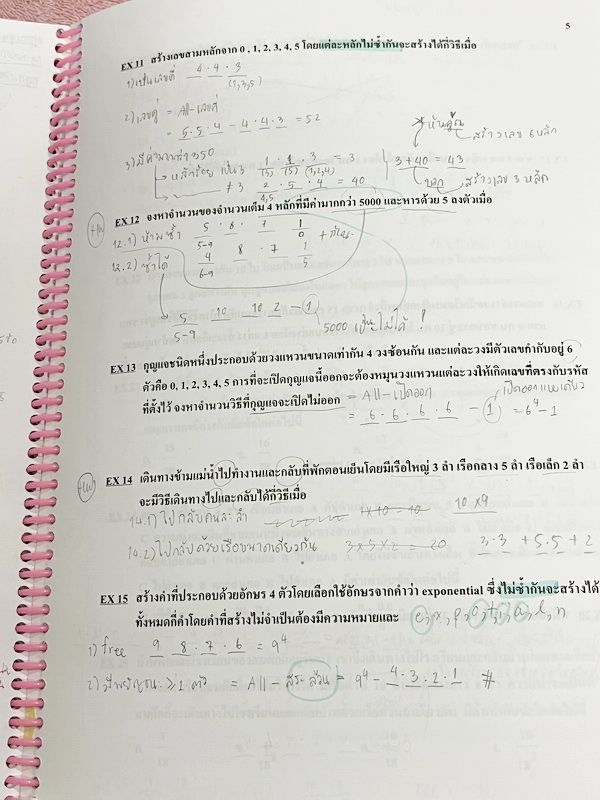 5
EX 11 สร้างเลขสามหลักจาก 0 , 1, 2, 3, 4, 5 โดยแต่ละหลักไม่ซ้ำกันจะสร้างได้กี่วิธีเมื่อ
1) เป็นเลขคี่ 4 · 4 · 3
(1,3,5)
2) เลขคู่ = All - เลขคี่
= 5 · 5 · 4 - 4 · 4 · 3 = 52
3) มีค่ามากกว่า 350
หลักร้อย เป็น 3 1 · 1 · 3 = 3
(3) (5) (1,2,4)
≠ 3 2 · 5 · 4 = 40
4,5
ห้ามคูณ
สร้างเลข 6 หลัก
3 + 40 = 43
บวก สร้างเลข 3 หลัก
EX 12 จงหาจำนวนของจำนวนเต็ม 4 หลักที่มีค่ามากกว่า 5000 และหารด้วย 5 ลงตัวเมื่อ
12.1) ห้ามซ้ำ 5 · 8 · 7 1
5-9 0
12.2) ซ้ำได้ 4 8 · 7 1
6-9 5
5 10 10 2 - 1
5-9 5000 ไม่ได้ !
EX 13 กุญแจชนิดหนึ่งประกอบด้วยวงแหวนขนาดเท่ากัน 4 วงซ้อนกัน และแต่ละวงมีตัวเลขกำกับอยู่ 6
ตัวคือ 0, 1, 2, 3, 4, 5 การที่จะเปิดกุญแจนี้ออกจะต้องหมุนวงแหวนแต่ละวงให้เกิดเลขที่ตรงกับรหัส
ที่ตั้งไว้ จงหาจำนวนวิธีที่กุญแจจะเปิดไม่ออก = All - เปิดออก เปิดออกแบบเดียว
= 6 · 6 · 6 · 6 - 1 = 6⁴ - 1
EX 14 เดินทางข้ามแม่น้ำไปทำงานและกลับที่พักตอนเย็นโดยมีเรือใหญ่ 3 ลำ เรือกลาง 5 ลำ เรือเล็ก 2 ลำ
จะมีวิธีเดินทางไปและกลับได้กี่วิธีเมื่อ
14.1) ไปกลับคนละลำ 1×10 = 10 10 × 9
14.2) ไปกลับด้วยเรือขนาดเดียวกัน = 20 3 · 3 + 5 · 5 + 2
EX 15 สร้างคำที่ประกอบด้วยอักษร 4 ตัวโดยเลือกใช้อักษรจากคำว่า exponential ซึ่งไม่ซ้ำกันจะสร้างได้
ทั้งหมดกี่คำโดยคำที่สร้างไม่จำเป็นต้องมีความหมายและ e, x, p, o, t, i, a, l, n
1) free 9 8 · 7 · 6 = 9⁴
2) มีพยัญชนะ ≥ 1 ตัว = All - สระล้วน = 9⁴ - 4 · 3 · 2 · 1 #